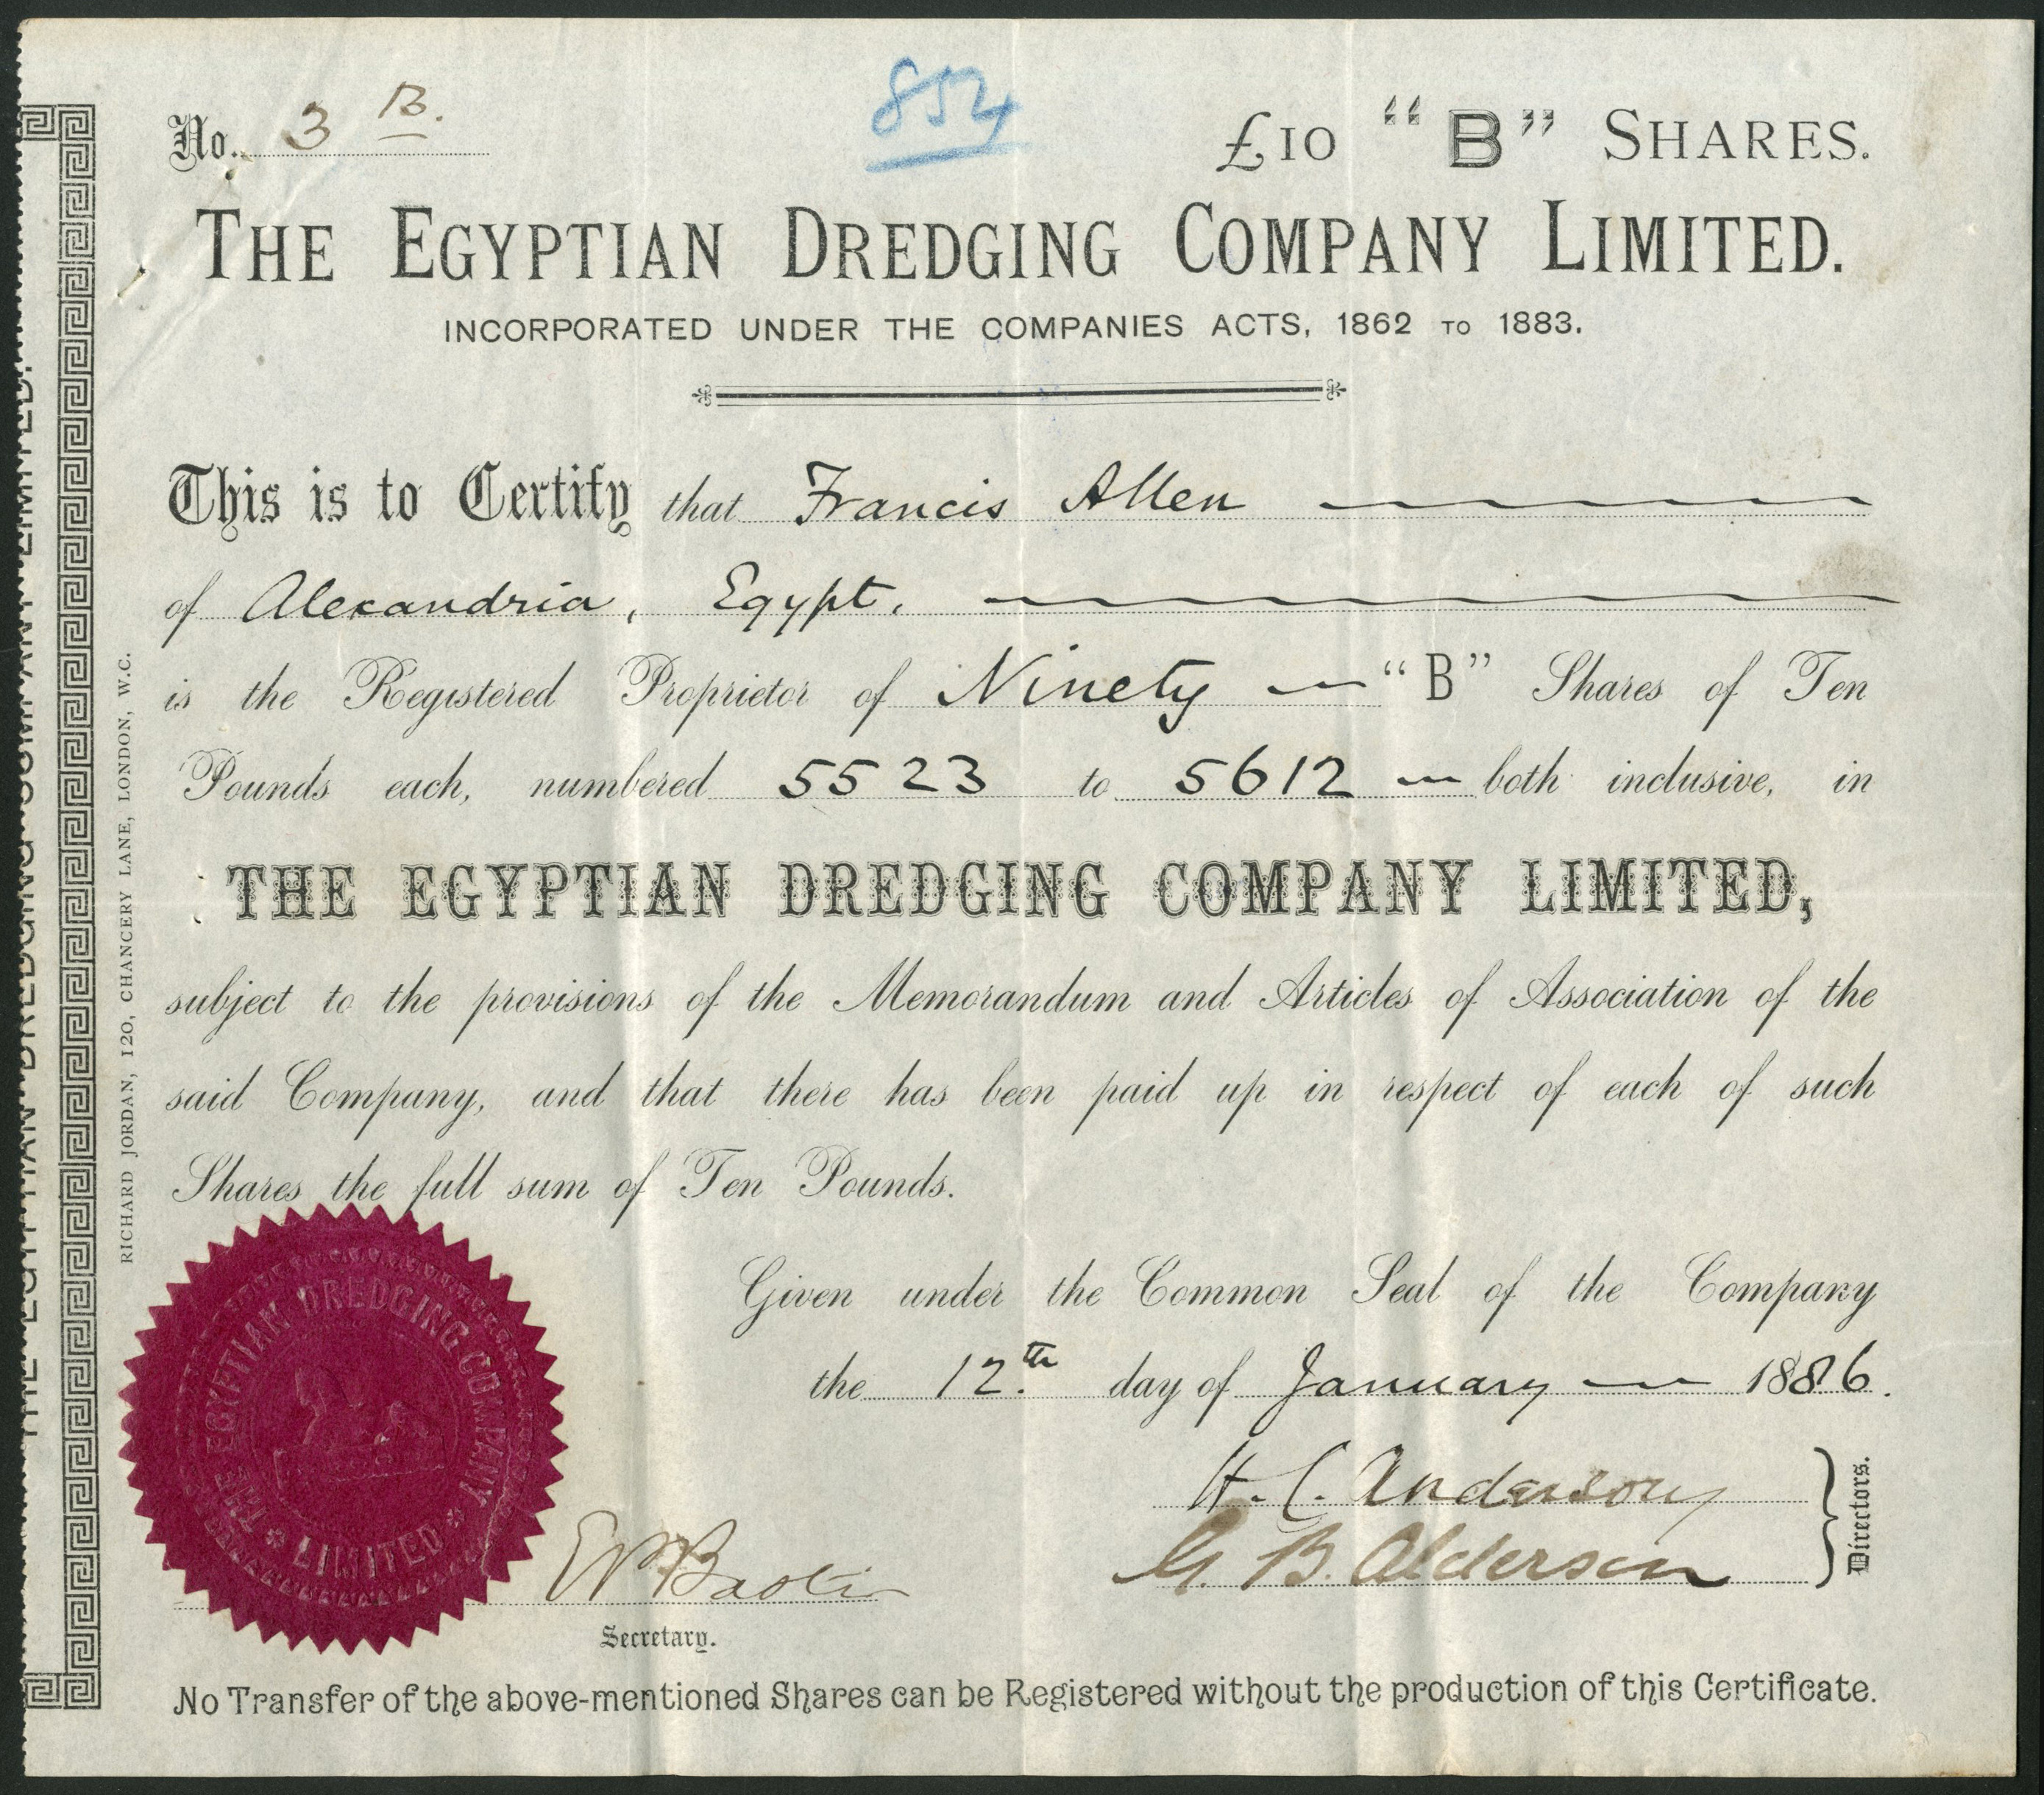 No. 3 B.
854
£10 "B" SHARES.
THE EGYPTIAN DREDGING COMPANY LIMITED.
INCORPORATED UNDER THE COMPANIES ACTS, 1862 TO 1883.
This is to Certify that Francis Allen
of Alexandria, Egypt.
is the Registered Proprietor of Ninety "B" Shares of Ten
Pounds each, numbered 5523 to 5612 both inclusive, in
THE EGYPTIAN DREDGING COMPANY LIMITED,
subject to the provisions of the Memorandum and Articles of Association of the
said Company, and that there has been paid up in respect of each of such
Shares the full sum of Ten Pounds.
Given under the Common Seal of the Company
the 12th day of January 1886.
H. C. Anderson
G. B. Alderson
Directors.
Secretary.
No Transfer of the above-mentioned Shares can be Registered without the production of this Certificate.
THE EGYPTIAN DREDGING COMPANY LIMITED
RICHARD JORDAN, 120, CHANCERY LANE, LONDON, W.C.
THE EGYPTIAN DREDGING COMPANY LIMITED.